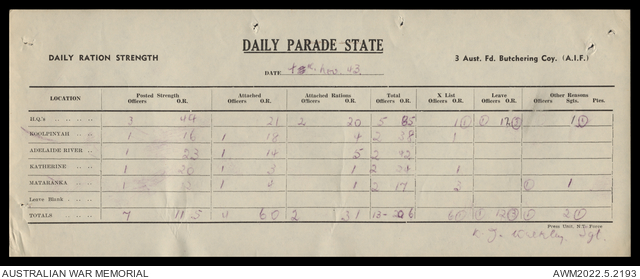 DAILY PARADE STATE
DAILY RATION STRENGTH
3 Aust. Fd. Butchering Coy. (A.I.F.)
DATE Nov. 43.
LOCATION Posted Strength Attached Attached Rations Total X List Leave Other Reasons
Officers O.R. Officers O.R. Officers O.R. Officers O.R. Officers O.R. Officers O.R. Sgts. Ptes.
H.Q's 3 44 21 2 20 5 85 1 1
KOOLPINYAH 1 16 1 18 4 2 38 1
ADELAIDE RIVER 1 23 1 14 5 2 42
KATHERINE 1 20 1 3 1 2 24 1
MATARANKA 1 1 4 2 17 3 1
Leave Blank
TOTALS 7 115 4 60 2 31 13 206 6 12 2
Press Unit, N.T. Force
Sgt.
AUSTRALIAN WAR MEMORIAL
AWM2022.5.2193